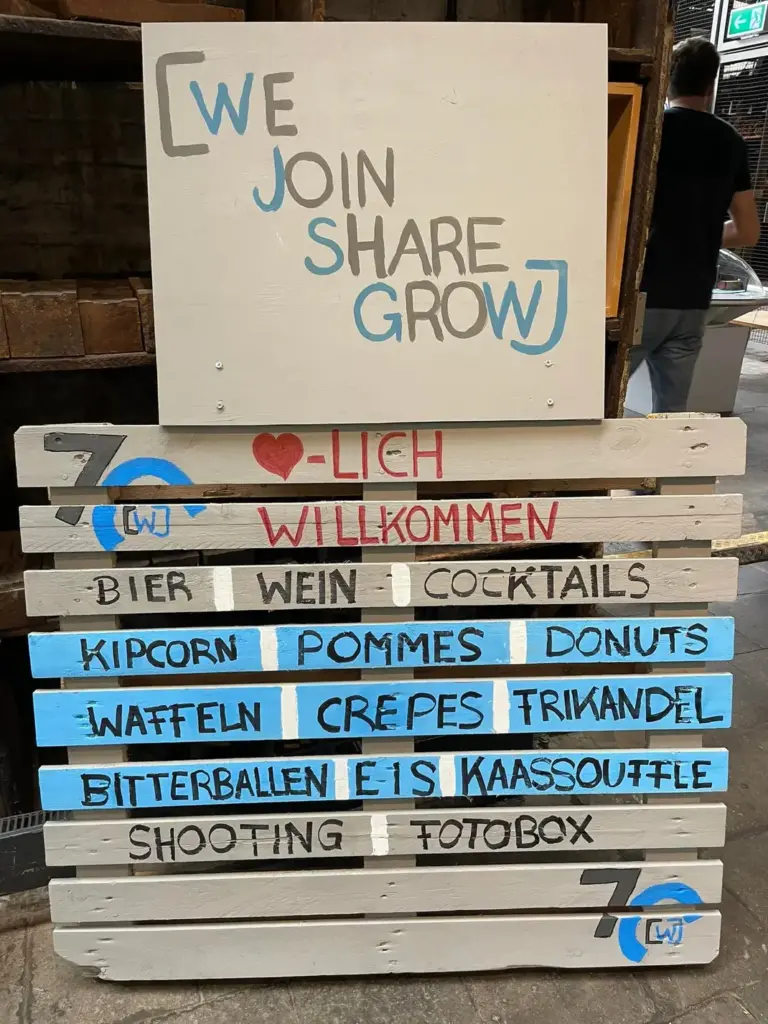 [WE
JOIN
SHARE
GROW]
70 ❤-LICH
[W] WILLKOMMEN
BIER WEIN COCKTAILS
KIPCORN POMMES DONUTS
WAFFELN CREPES FRIKANDEL
BITTERBALLEN E-IS KAASSOUFFLE
SHOOTING FOTOBOX
70
[W]